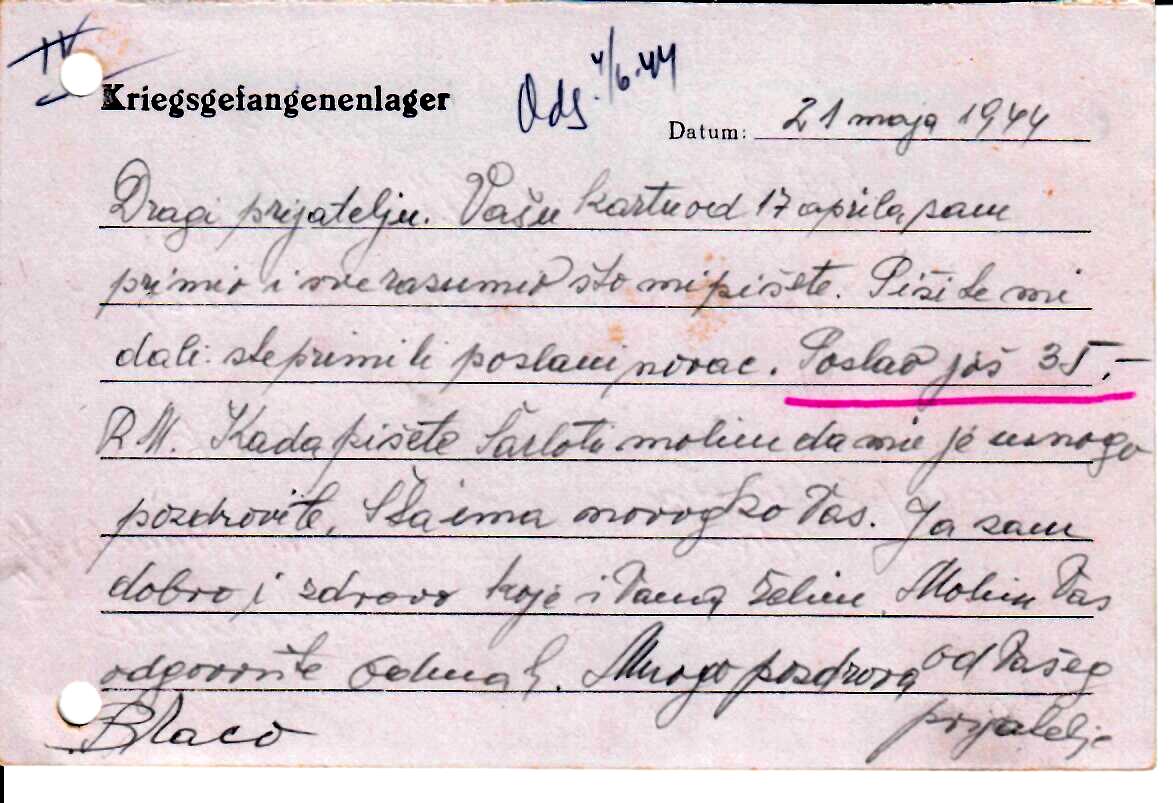 IV
Kriegsgefangenenlager
Ods. 4/6.44
Datum: 21 maja 1944
Dragi prijatelju. Vašu kartu od 17 aprila sam
primio i sve razumio što mi pišete. Pišite mi
dali ste primili poslani novac. Poslao još 35.-
RM. Kada pišete Šarloti molim da mi je mnogo
pozdravite, Šta ima novog ko Vas. Ja sam
dobro i zdravo koje i Vama želim. Molim Vas
odgovorite odmah. Mnogo pozdrova od Vašeg
prijatelje